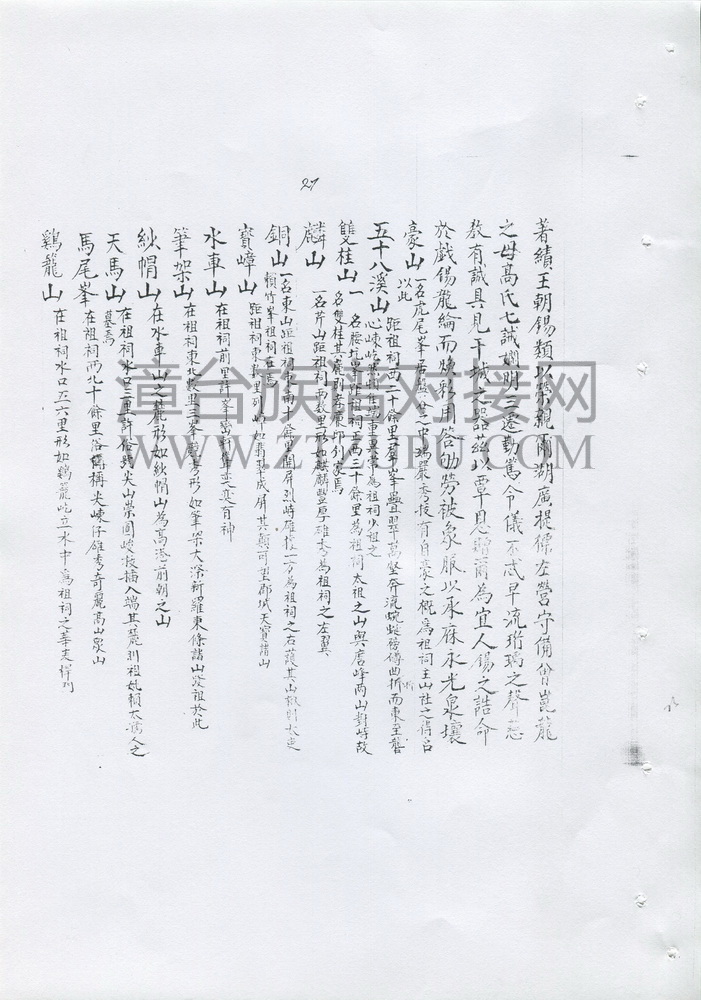 27
著績王朝錫類以榮親爾湖廣提標左營守備曾崑龍
之母高氏七誡嫻明三遷勤篤令儀不忒早流珩瑀之聲慈
教有誠具見干城之器茲以覃恩贈爾為宜人錫之誥命
於戲錫龍綸而煥彩用答劬勞被象服以承庥永光泉壤
豪山 一名虎尾峯居縣之中瑞嚴秀拔有自豪之概為祖祠主山社之得名
以此
五十八溪山 距祖祠西二十餘里羣峯疊翠萬壑奔流蜿蜒磅礴曲折而東至
心崠屹
為祖祠少祖之
雙桂山 一名
祖祠正西三十餘里為祖祠太祖之山與
峰両山對峙故
名雙桂其麓到
麟山 一名芹山距祖祠西數里形如麒麟豐厚雄秀為祖祠之左翼
銅山 一名東山距祖祠東南十餘里開屏列峙雄
一方為祖祠之右護其山
寶嶂山 距祖祠東數里列嶂如翡翠成屏其巔可望郡城天寶諸山
水車山 在祖祠前里許峯巒
變有神
筆架山 在祖祠東北數里三峯
秀形如筆架大深新羅東條諸山發祖於此
紗帽山 在水車山之麓形如紗帽山為高港前朝之山
天馬山 在祖祠水口二里許俗號尖山崇圓峻拔插入端其麓則祖妣賴太孺人之
墓焉
馬尾峯 在祖祠西北十餘里俗稱尖崠仔雄秀奇麗高山眾山
鷄籠山 在祖祠水口五六里形如鷄籠屹立水中為祖祠之華表捍列
漳台族譜对接网
WWW.ZTZUPU.COM